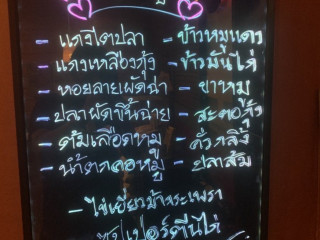 - แกงไตปลา - ข้าวหมูแดง
- แกงเหลืองกุ้ง - ข้าวมันไก่
- หอยลายผัดฉ่า - ขาหมู
- ปลาผัดขึ้นฉ่าย - สะตอกุ้ง
- ต้มเลือดหมู - คั่วกลิ้ง
- น้ำตกคอหมู - ปลาส้ม
- ไข่เยี่ยวม้ากระเพรา
ซุปเปอร์ตีนไก่